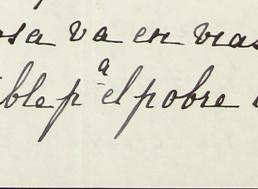 osa va en vias
ible pª el pobre